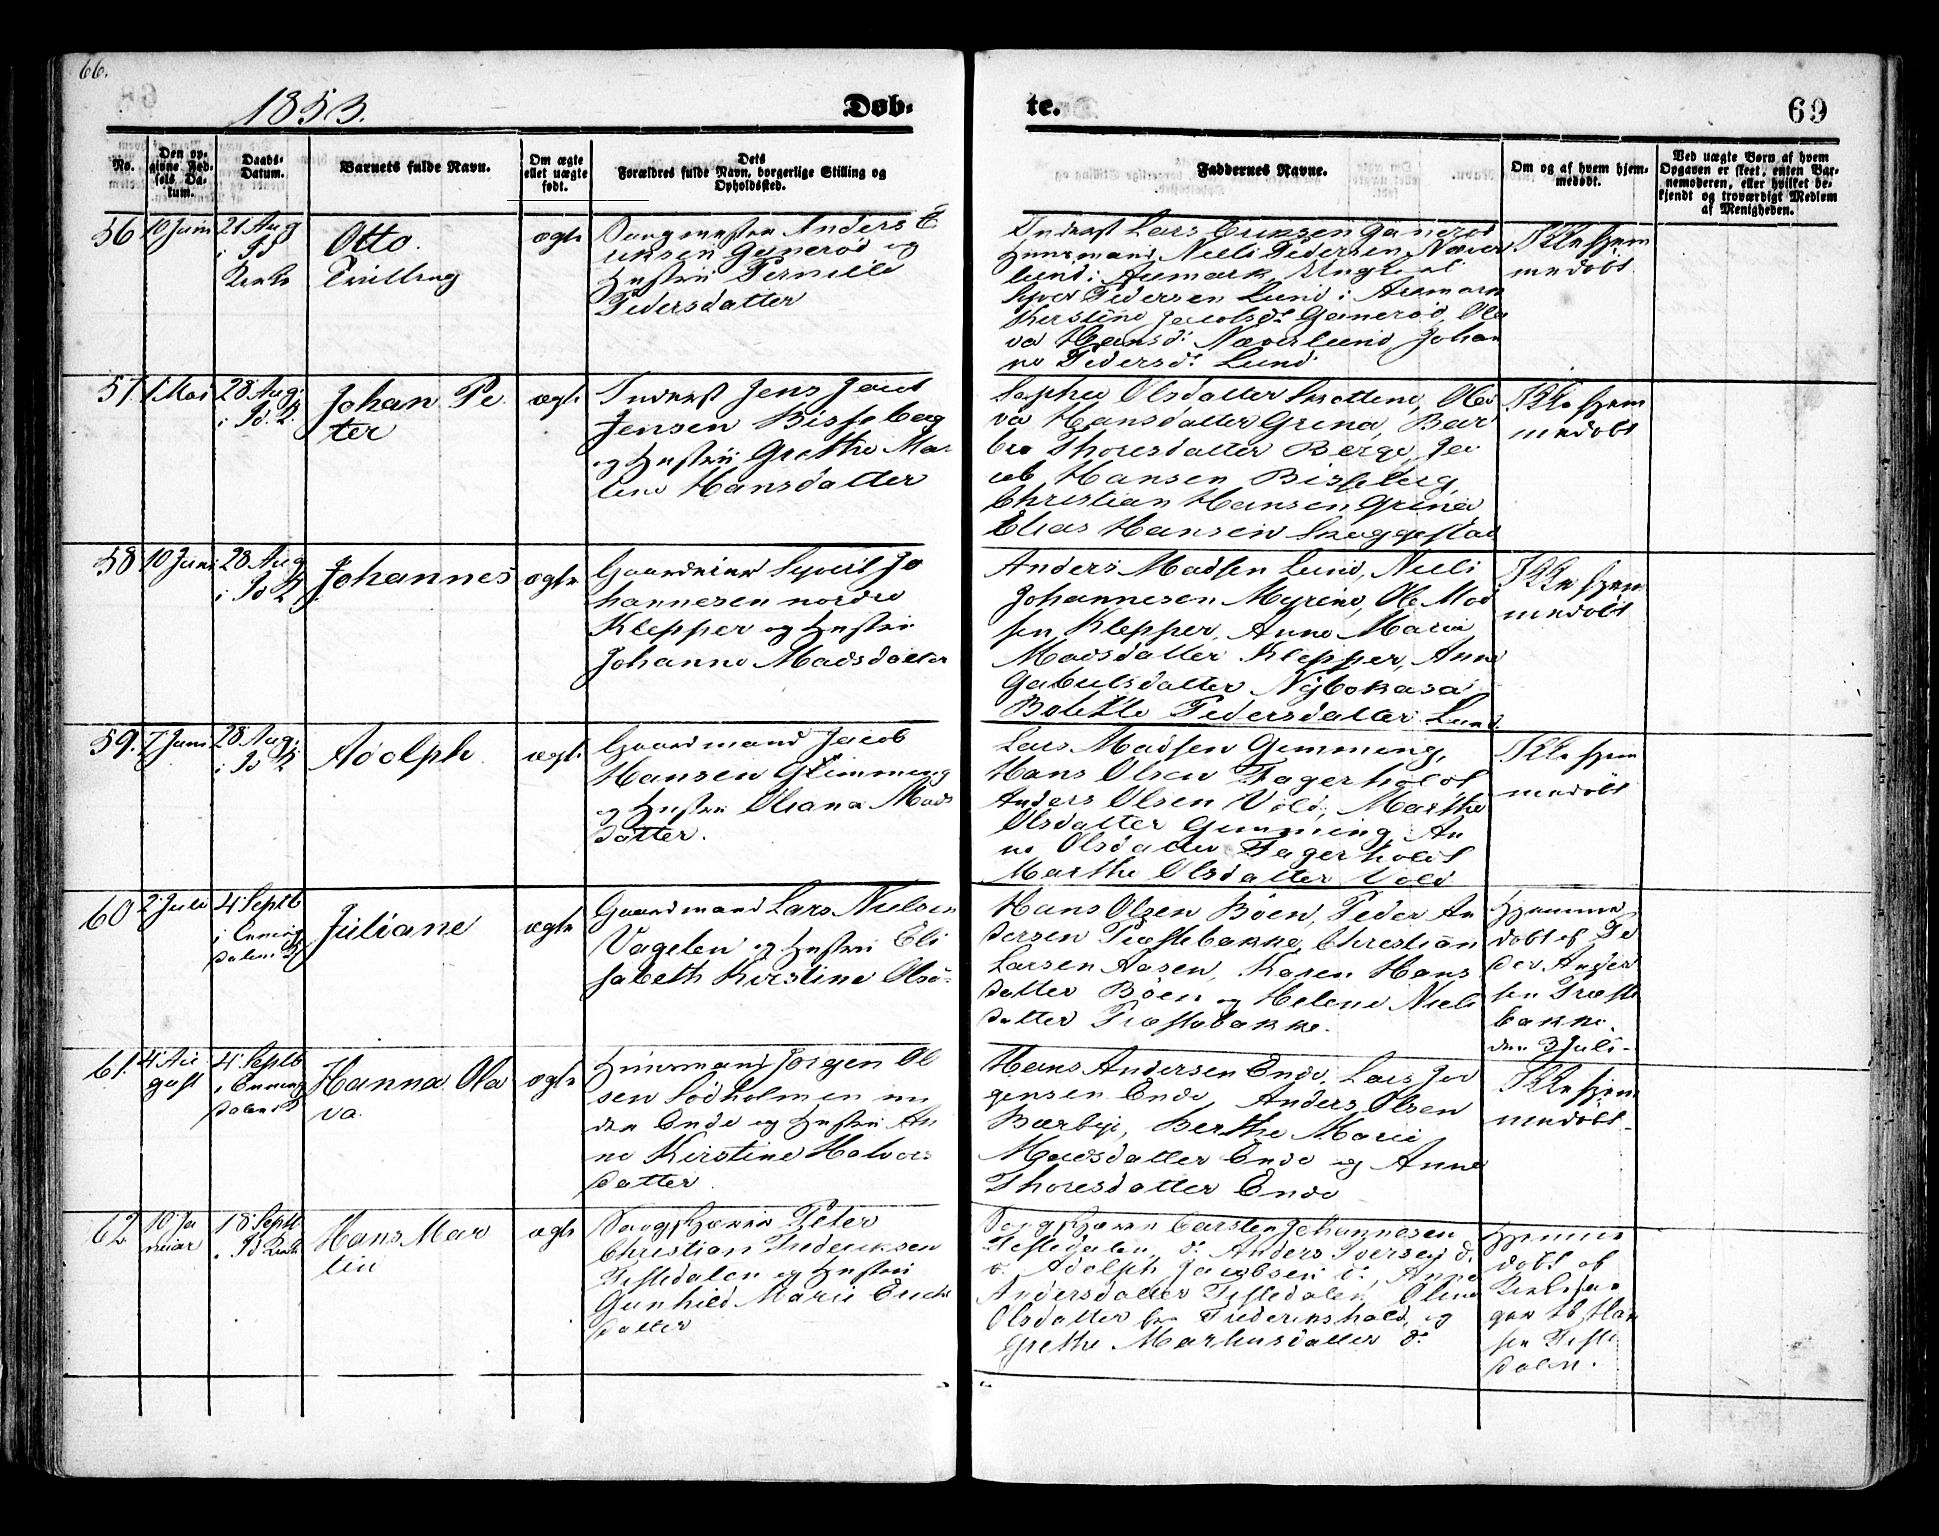 66.
1853.
Døb-
te.
69
No.
Den op-
givne Fød-
sels Da-
tum.
Daabs-
Datum.
Barnets fulde Navn.
Om ægte
ellet uægte
født.
Dets
Forældres fulde Navn, borgerlige Stilling og
Opholdssted.
Faddernes Navne.
Om og af hvem hjem-
medøbt.
Ved uægte Børn af hvem
Opgaven er skeet, enten Bar-
nemoderen, eller hvilket be-
kjendt og troværdigt Medlem
af Menigheden.
56
10 Juni
21 Aug
i Id
Kirke
Otto.
Tvilling
ægte
Anders E
riksen Ganerød og
Hustru Pernille
Pedersdatter
Inderst Lars Eriksen Ganerød
Huusmand Niels Pedersen Næver
lund i Aremark, Ungkarl
Syver Pedersen Lund i Aremark
Kirstine Jacobsd. Ganerød, Ola
va Hansd. Næverlund Johan
ne Pedersd. Lund
Ikke hjem
medøbt
57
1 Mai
28 Aug.
i Id. K
Johan Pe
ter
ægte
Inderst Jens Jacob
Jensen Bisseberg
og Hustru Grethe Ma-
lene Hansdatter
Sophie Olsdatter Skotten, Ola
va Hansdatter Grena, Bar
bra Thoresdatter Berge, Ja
cob Hansen Bisseberg,
Christian Hansen Grena
Elias Hansen Skaggestad
Ikke hjem
medøbt
58
10 Juni
28 Aug
i Id K
Johannes
ægte
Gaardeier Syvert Jo
hannesen nordre
Klepper og Hustru
Johanne Madsdatter
Anders Madsen Lund, Niels
Johannesen Myrene, Ole Mad
sen Klepper, Anne Maria
Madsdatter Klepper, Anne
Gabrielsdatter Nybokasa
Bolette Pedersdatter Lund
Ikke hjem
medøbt
59.
7 Juni
28 Aug.
i Id K
Adolph
ægte
Gaardmand Jacob
Hansen Glimmeng
og Hustru Oliana Mads
datter.
Lars Madsen Gimming,
Hans Olsen Fagerholdt
Anders Olsen Vold, Marthe
Olsdatter Gimming, An
ne Olsdatter Fagerholdt
Marthe Olsdatter Vold
Ikke hjem
medøbt
60
2 Juli
4 Septb
i Enning
dalens K
Juliane
ægte
Gaardmand Lars Nielsen
Vagelen og Hustru Eli
sabeth Kirstine Olsd-
Hans Olsen Bøen, Peder An
dersen Præstebakke, Christian
Larsen Aasen, Karen Hans
datter Bøen og Helene Niels
datter Præstebakke.
Hjemme
døbt af Pe
der Ander
sen Præste
bakke.
den 3 Juli-
61.
4 Au
gust
4 Septb
i Enning
dalens K
Hanna Ola
va.
ægte
Huusmand Jørgen Ol
sen Sødholmen un
der Ende og Hustru An
ne Kirstine Halvors
datter.
Hans Andersen Ende, Lars Jør
gensen Ende, Anders Olsen
Bærby, Berthe Marie
Madsdatter Ende og Anne
Thoresdatter Ende
Ikke hjem
medøbt-
62
10 Ja
nuar
18 Septb
i Id Kirke
Hans Mar
tin
ægte
Peter
Christian Frederiksen
Tistedalen og Hustru
Gunhild Marie Erichs
datter
Carsten Johannesen
Tistedalen, do Anders Iversen do
Adolph Jacobsen do, Anne
Andersdatter Tistedalen, Oline
Olsdatter fra Frederikshald, og
Grethe Markusdatter do
Hjemme
døbt af
Kirkesan
ger Han
sen Tiste
dalen.